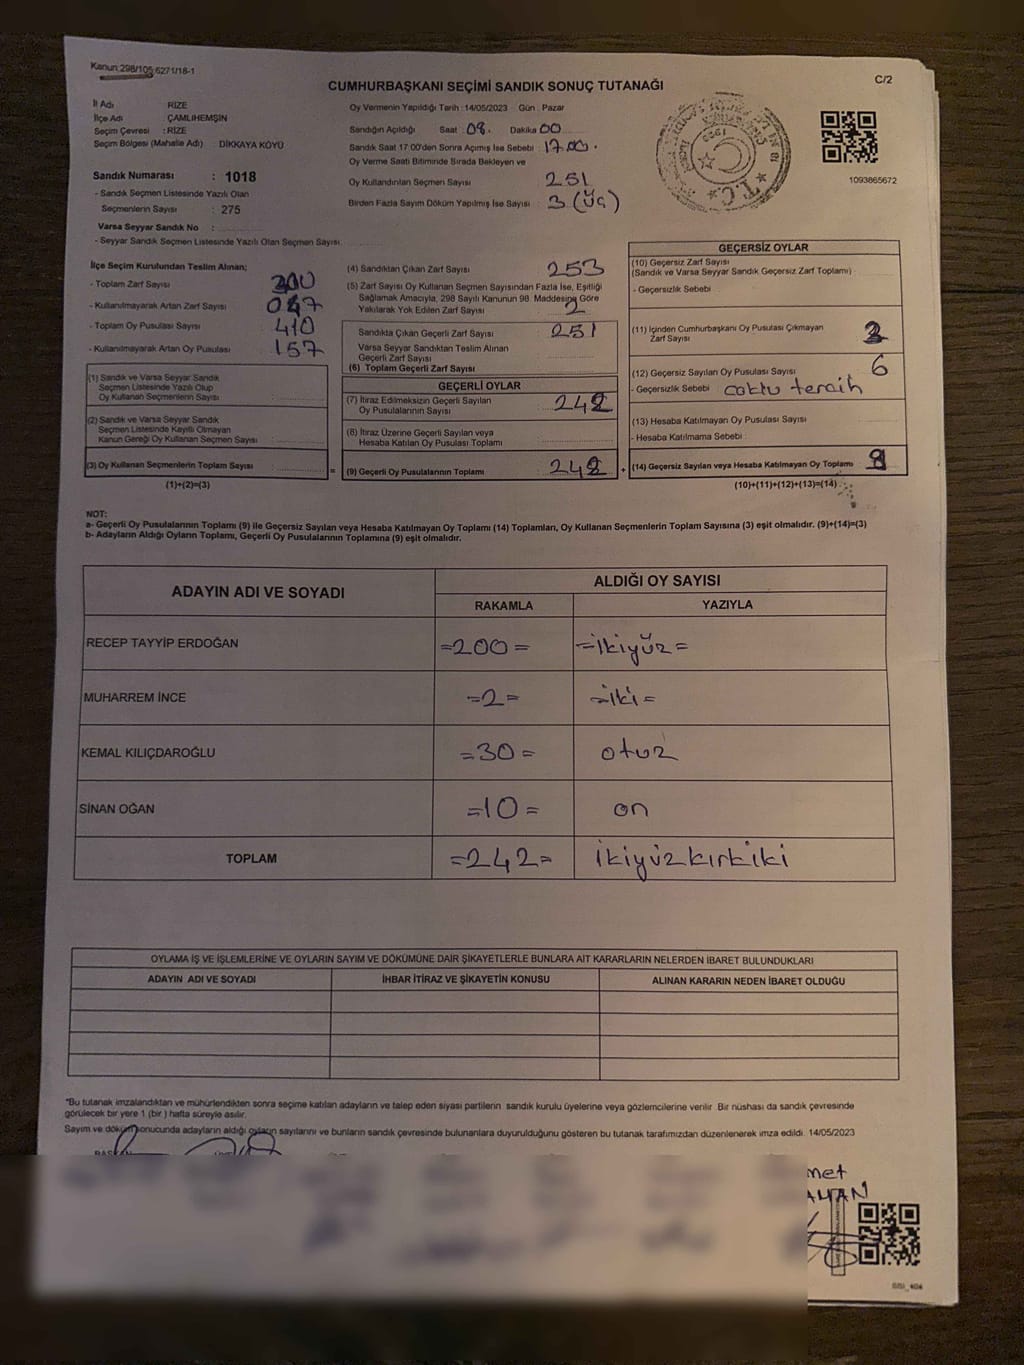 Kanun:298/105,6271/18-1
C/2
CUMHURBAŞKANI SEÇİMİ SANDIK SONUÇ TUTANAĞI
İl Adı RİZE
İlçe Adı ÇAMLIHEMŞİN
Seçim Çevresi : RİZE
Seçim Bölgesi (Mahalle Adı) : DİKKAYA KÖYÜ
Sandık Numarası : 1018
- Sandık Seçmen Listesinde Yazılı Olan
Seçmenlerin Sayısı : 275
Varsa Seyyar Sandık No :
- Seyyar Sandık Seçmen Listesinde Yazılı Olan Seçmen Sayısı:
Oy Vermenin Yapıldığı Tarih :14/05/2023 Gün : Pazar
Sandığın Açıldığı Saat : 08. Dakika 00
Sandık Saat 17:00'den Sonra Açımış İse Sebebi : 17.00.
Oy Verme Saati Bitiminde Sırada Bekleyen ve
Oy Kullandırılan Seçmen Sayısı 251
Birden Fazla Sayım Döküm Yapılmış İse Sayısı : 3 (Üç)
T.C.
1093865672
İlçe Seçim Kurulundan Teslim Alınan;
- Toplam Zarf Sayısı : 300
- Kullanılmayarak Artan Zarf Sayısı : 047
- Toplam Oy Pusulası Sayısı : 410
- Kullanılmayarak Artan Oy Pusulası : 157
(1) Sandık ve Varsa Seyyar Sandık
Seçmen Listesinde Yazılı Olup
Oy Kullanan Seçmenlerin Sayısı :
(2) Sandık ve Varsa Seyyar Sandık
Seçmen Listesinde Kayıtlı Olmayan
Kanun Gereği Oy Kullanan Seçmen Sayısı :
(3) Oy Kullanan Seçmenlerin Toplam Sayısı :
(1)+(2)=(3)
(4) Sandıktan Çıkan Zarf Sayısı : 253
(5) Zarf Sayısı Oy Kullanan Seçmen Sayısından Fazla İse, Eşitliği
Sağlamak Amacıyla, 298 Sayılı Kanunun 98. Maddesine Göre
Yakılarak Yok Edilen Zarf Sayısı : 2
Sandıkta Çıkan Geçerli Zarf Sayısı : 251
Varsa Seyyar Sandıktan Teslim Alınan
Geçerli Zarf Sayısı
(6) Toplam Geçerli Zarf Sayısı :
GEÇERLİ OYLAR
(7) İtiraz Edilmeksizin Geçerli Sayılan
Oy Pusulalarının Sayısı : 242
(8) İtiraz Üzerine Geçerli Sayılan veya
Hesaba Katılan Oy Pusulası Toplamı :
= (9) Geçerli Oy Pusulalarının Toplamı : 242 +
GEÇERSİZ OYLAR
(10) Geçersiz Zarf Sayısı
(Sandık ve Varsa Seyyar Sandık Geçersiz Zarf Toplamı) :
- Geçersizlik Sebebi :
(11) İçinden Cumhurbaşkanı Oy Pusulası Çıkmayan
Zarf Sayısı
(12) Geçersiz Sayılan Oy Pusulası Sayısı : 6
- Geçersizlik Sebebi : çoklu tercih
(13) Hesaba Katılmayan Oy Pusulası Sayısı :
- Hesaba Katılmama Sebebi :
(14) Geçersiz Sayılan veya Hesaba Katılmayan Oy Toplamı :
(10)+(11)+(12)+(13)=(14)
NOT:
a- Geçerli Oy Pusulalarının Toplamı (9) ile Geçersiz Sayılan veya Hesaba Katılmayan Oy Toplamı (14) Toplamları, Oy Kullanan Seçmenlerin Toplam Sayısına (3) eşit olmalıdır. (9)+(14)=(3)
b- Adayların Aldığı Oyların Toplamı, Geçerli Oy Pusulalarının Toplamına (9) eşit olmalıdır.
ADAYIN ADI VE SOYADI
ALDIĞI OY SAYISI
RAKAMLA YAZIYLA
RECEP TAYYİP ERDOĞAN =200= =ikiyüz=
MUHARREM İNCE =2= =iki=
KEMAL KILIÇDAROĞLU =30= otuz
SİNAN OĞAN =10= on
TOPLAM =242= ikiyüzkırkiki
OYLAMA İŞ VE İŞLEMLERİNE VE OYLARIN SAYIM VE DÖKÜMÜNE DAİR ŞİKAYETLERLE BUNLARA AİT KARARLARIN NELERDEN İBARET BULUNDUKLARI
ADAYIN ADI VE SOYADI İHBAR İTİRAZ VE ŞİKAYETİN KONUSU ALINAN KARARIN NEDEN İBARET OLDUĞU
*Bu tutanak imzalandıktan ve mühürlendikten sonra seçime katılan adayların ve talep eden siyasi partilerin sandık kurulu üyelerine veya gözlemcilerine verilir. Bir nüshası da sandık çevresinde
görülecek bir yere 1 (bir) hafta süreyle asılır.
Sayım ve döküm sonucunda adayların aldığı oyların sayılarını ve bunların sandık çevresinde bulunanlara duyurulduğunu gösteren bu tutanak tarafımızdan düzenlenerek imza edildi. 14/05/2023